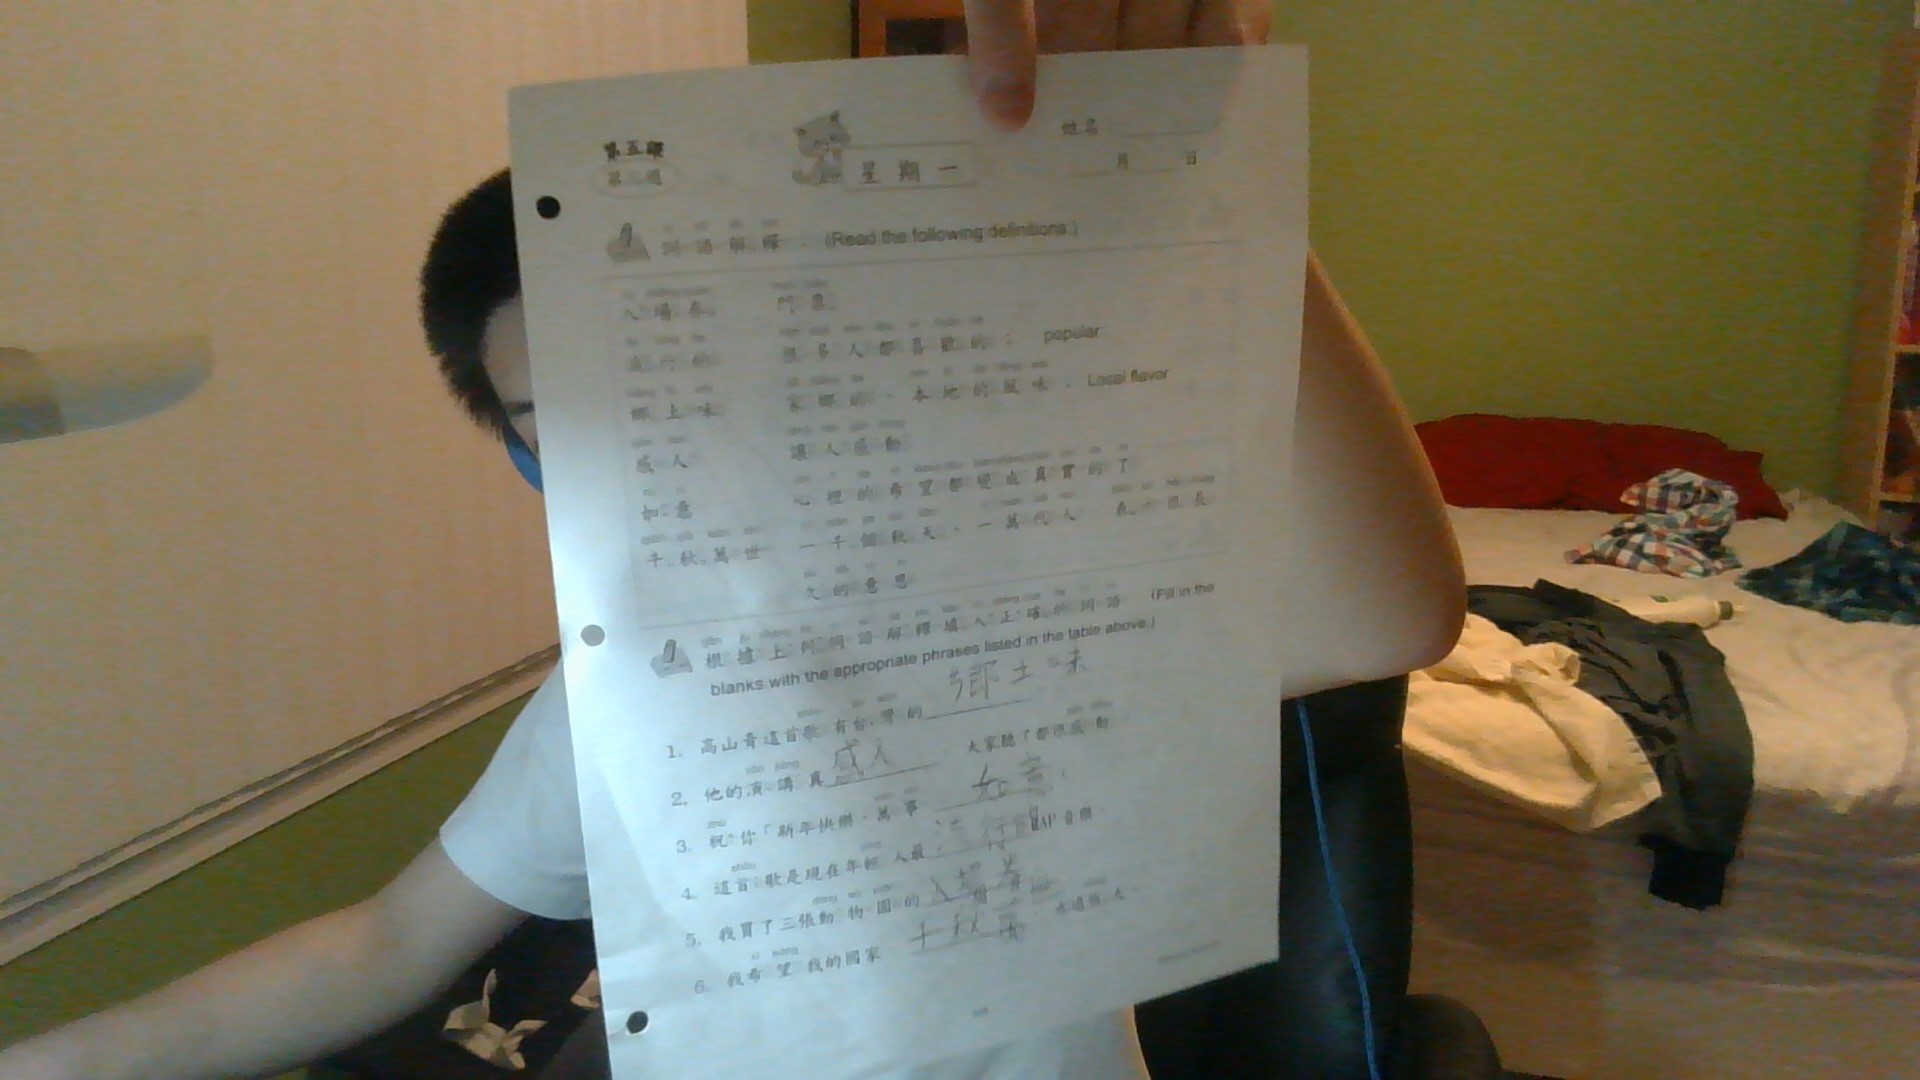 第五課
姓名
星期一
月 日
詞語解釋 (Read the following definitions.)
入場券 門票
流行的 很多人都喜歡的; popular
鄉土味 家鄉的、本地的風味. Local flavor
感人 讓人感動
如意 心裡的希望都變成真實的了
千秋萬世 一千個秋天、一萬代人 表示很長
久的意思
根據上列詞語解釋填入正確的詞語 (Fill in the
blanks with the appropriate phrases listed in the table above.)
1. 高山青這首歌有台灣的 鄉土味
2. 他的演講真 感人 大家聽了都很感動
3. 祝你「新年快樂、萬事 如意
4. 這首歌是現在年輕人最 流行的 RAP 音樂
5. 我買了三張動物園的 入場
6. 我希望我的國家 千秋萬 永遠強大